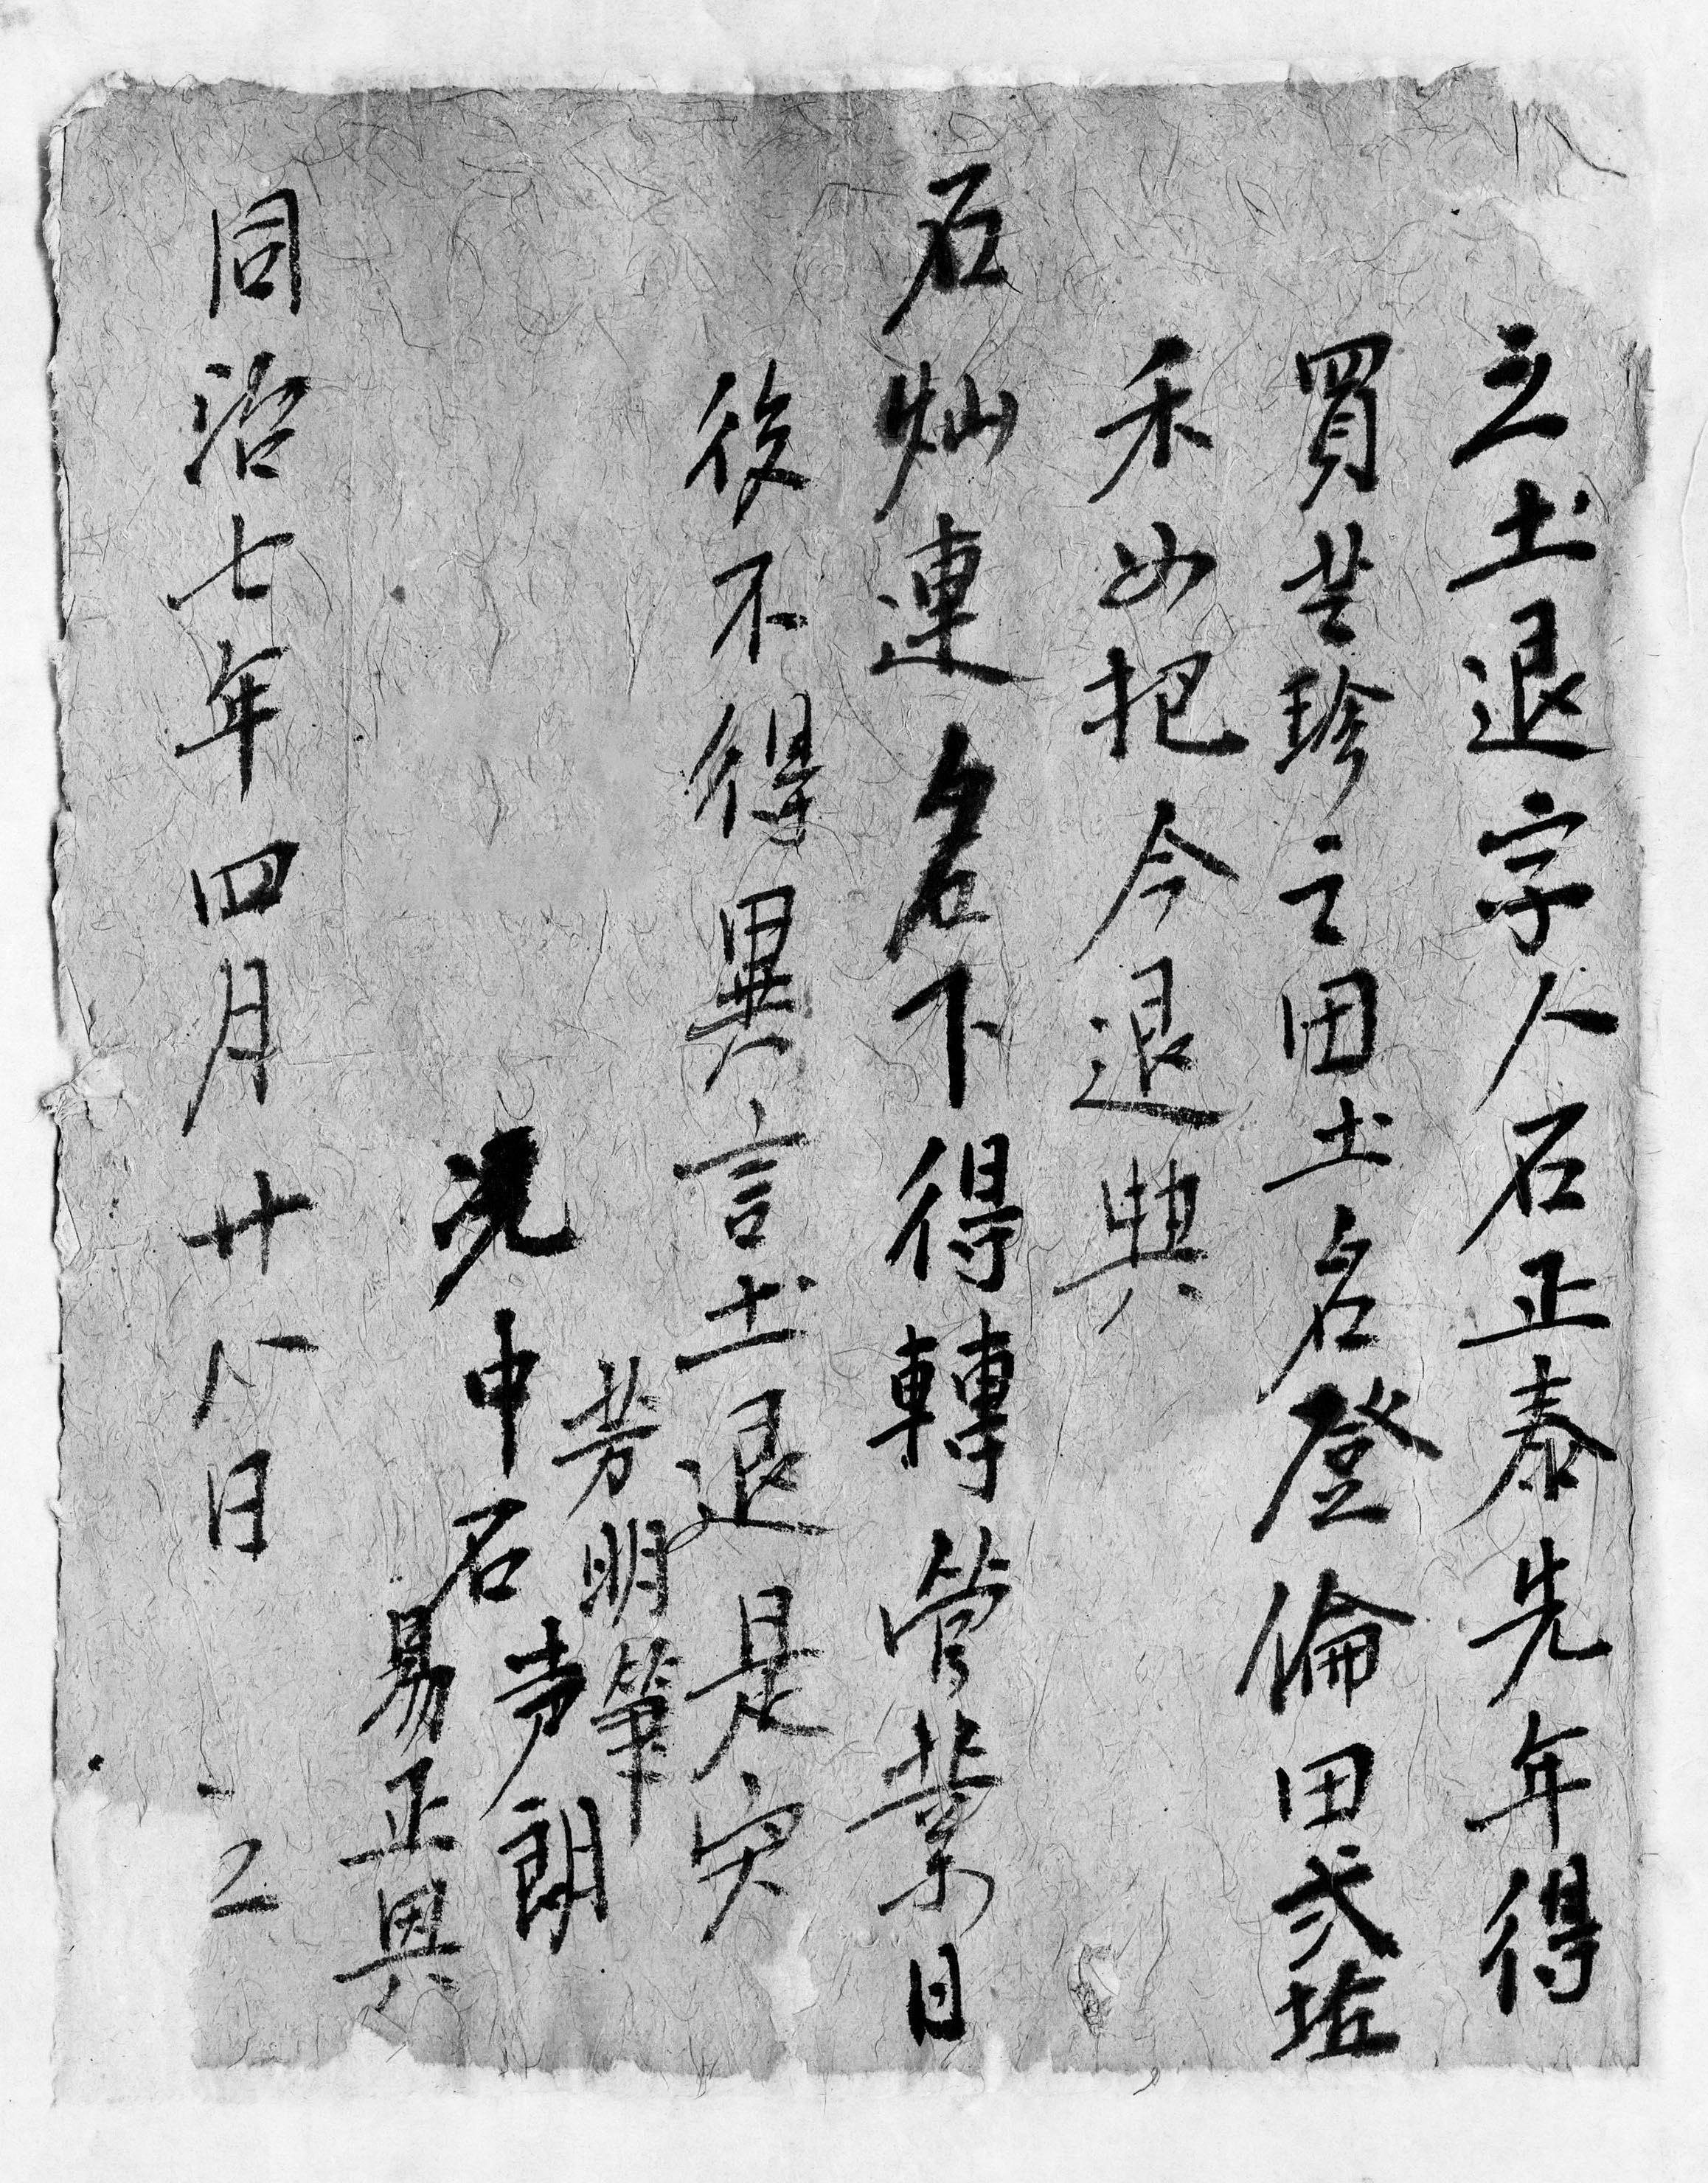 立土退字人石正泰先年得
買芝珍之田土名登倫田弍坵
禾四把今退與
石灿連名下得轉管業日
後不得異言土退是实
芳明筆
凭申石芳朗
易正興
同治七年四月廿八日 立